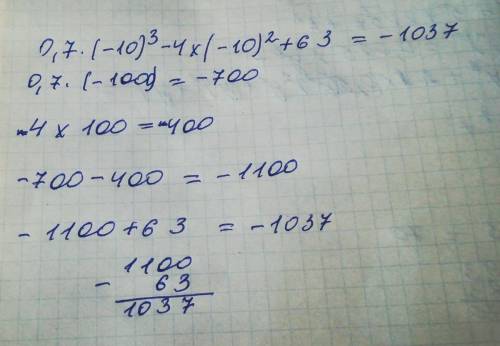 0,7·(-10)³-4×(-10)²+63 = -1037
0,7·(-1000) = -700
-4 × 100 = -400
-700-400 = -1100
- 1100+63 = -1037
1100
- 63
1037